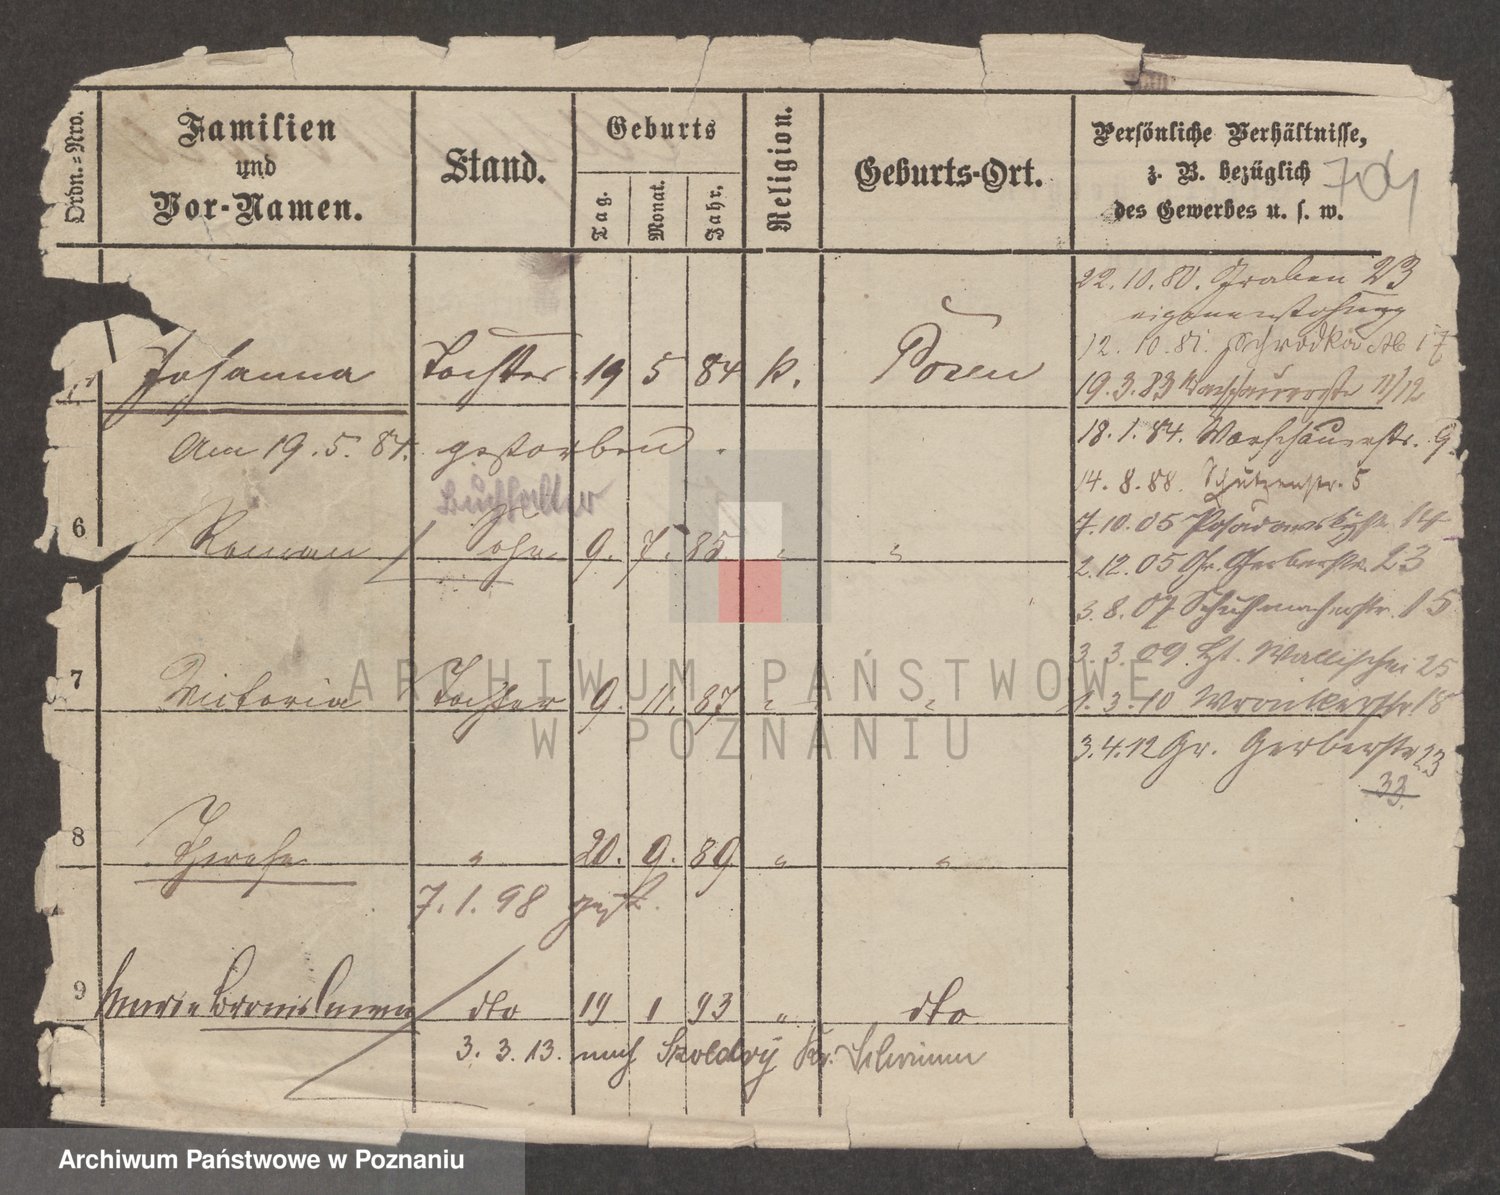 Ordn.=Nro.
Familien
und
Vor-Namen.
Stand.
Geburts
Tag.
Monat.
Jahr.
Religion.
Geburts-Ort.
Persönliche Verhältnisse,
z. B. bezüglich
des Gewerbes u. s. w.
704
22.10.80. Graben 23
12.10.81. Schrodka No 17
19.3.83 Warschauerstr 11/12
18.1.84. Warschauerstr. 9
14.8.88. Schützenstr. 5
7.10.05 Posadowskystr. 14
2.12.05 Gr. Gerberstr. 23
3.8.07 Schuhmacherstr. 15
3.3.09. Wallischei 25
1.3.10 Wronkerstr 18
3.4.12 Gr. Gerberstr 23
33
Johanna Tochter 19 5 84 k. Posen
Am 19.5.84. gestorben.
Buchhalter
6 Roman Sohn 9. 7. 85 " "
7 Victoria Tochter 9. 11. 87 " "
8 Therese " 20. 9. 89 " "
7.1.98 gest.
9 Maria Bronislawa dto 19 1 93 " dto
3.3.13. nach Kr. Schrimm
ARCHIWUM PAŃSTWOWE
W POZNANIU
Archiwum Państwowe w Poznaniu